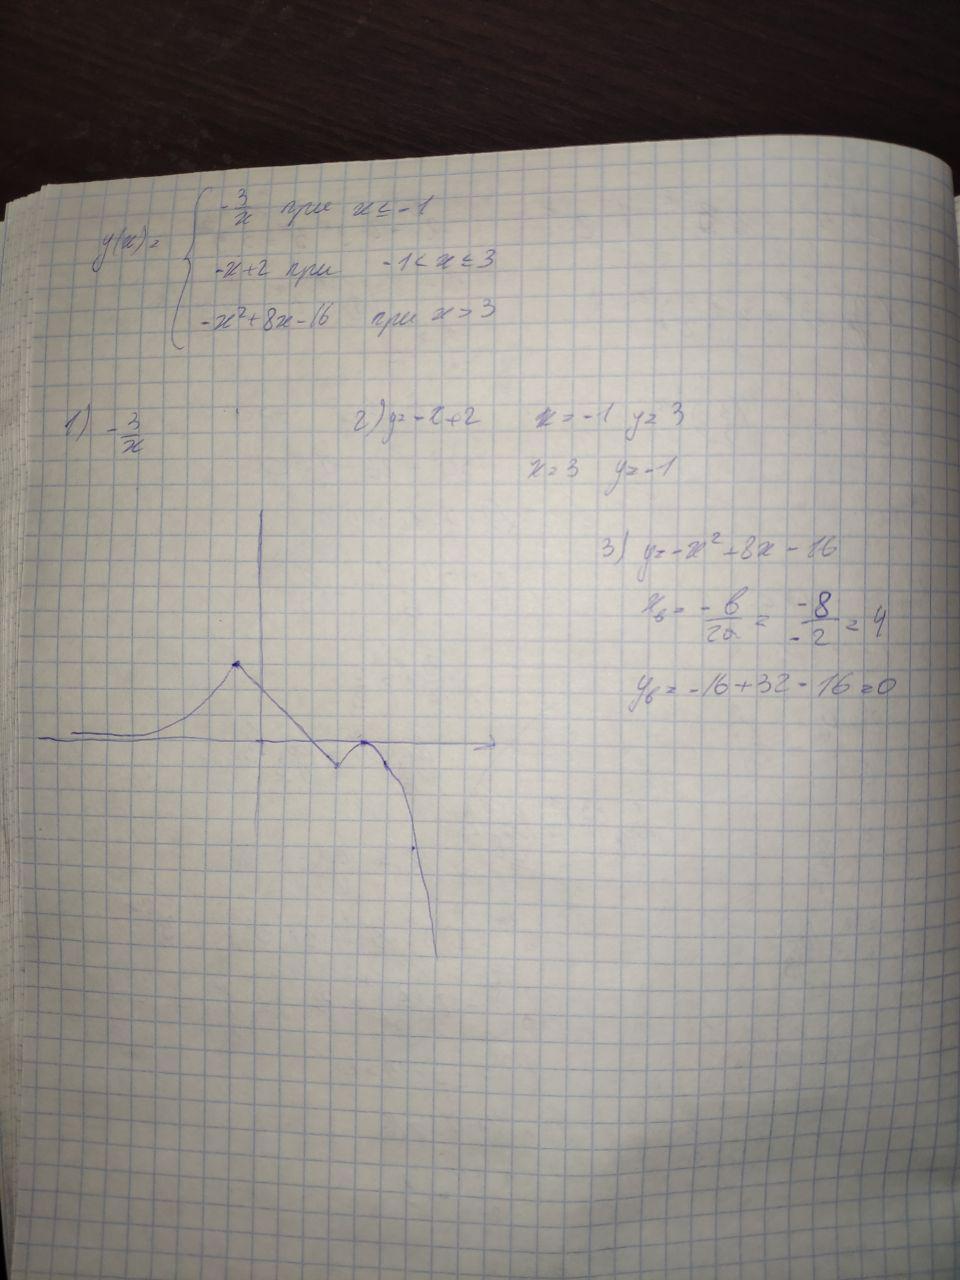 y(x) = { -3/x при x ≤ -1
-x+2 при -1 < x ≤ 3
-x²+8x-16 при x > 3
1) -3/x
2) y = -x+2 x = -1 y = 3
x = 3 y = -1
3) y = -x²+8x-16
xв = -в/2a = -8/-2 = 4
yв = -16+32-16=0